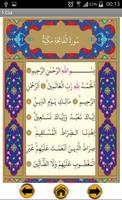 00:13
1.Cüz
سُورَةُ الْفَاتِحَةِ مَكِّيَّةٌ
بِسْمِ اللّٰهِ الرَّحْمٰنِ الرَّحِيمِ
اَلْحَمْدُ لِلّٰهِ رَبِّ الْعَالَمِينَ الرَّحْمٰنِ
الرَّحِيمِ مَالِكِ يَوْمِ الدِّينِ اِيَّاكَ
نَعْبُدُ وَاِيَّاكَ نَسْتَعِينُ اِهْدِنَا
الصِّرَاطَ الْمُسْتَقِيمَ صِرَاطَ الَّذِينَ
اَنْعَمْتَ عَلَيْهِمْ غَيْرِ الْمَغْضُوبِ
عَلَيْهِمْ وَلَا الضَّالِّينَ